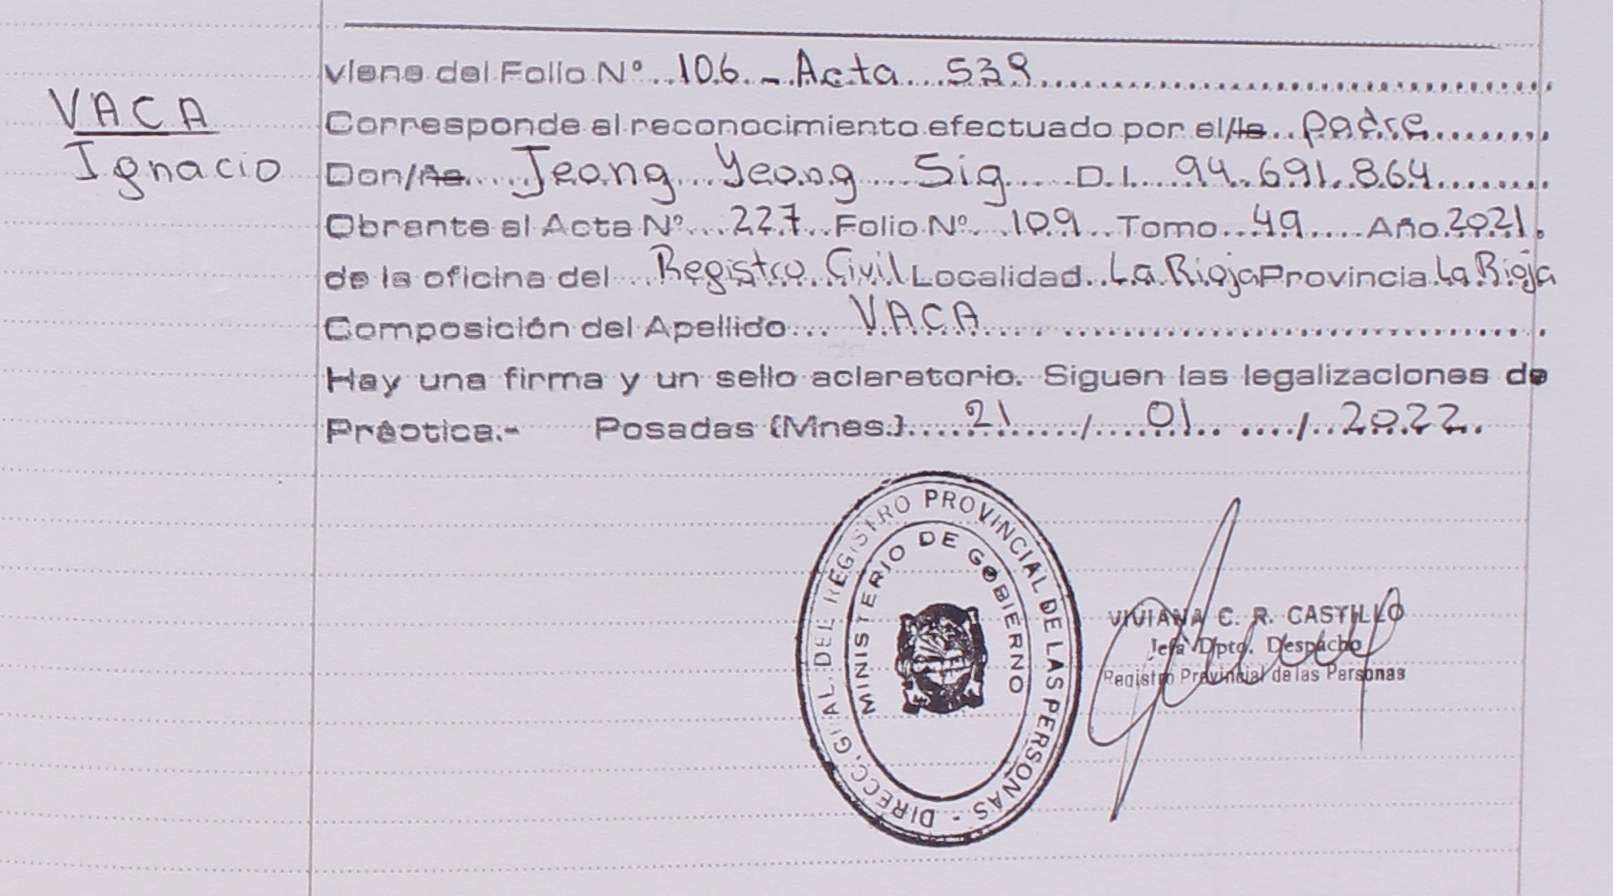 VACA
Ignacio
Viene del Folio Nº 106 - Acta 539
Corresponde al reconocimiento efectuado por el/la padre
Don/ña Jeong Yeong Sig D.I. 94.691.864
Obrante al Acta Nº 227 Folio Nº 109 Tomo 49 Año 2021.
de la oficina del Registro Civil Localidad La Rioja Provincia La Rioja
Composición del Apellido VACA
Hay una firma y un sello aclaratorio. Siguen las legalizaciones de
Práctica.- Posadas (Mnes.) 21 / 01 / 2022.
DIRECC. GRAL. DEL REGISTRO PROVINCIAL DE LAS PERSONAS -
MINISTERIO DE GOBIERNO
VIVIANA C. R. CASTILLO
Jefa Dpto. Despacho
Registro Provincial de las Personas